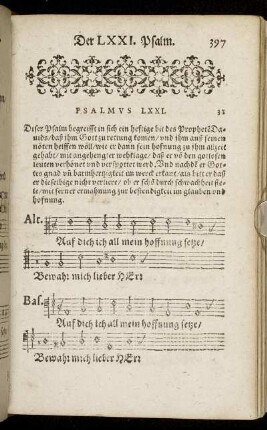 Der LXXI. Psalm. 397
PSALMVS LXXI. 33
Diser Psalm begreifft in sich ein hefftige bit des Propheten Da-
uids/ daß ihm Gott zu rettung komen/ und ihm auß seinen
nöten helffen wöll/ wie er dann sein hofnung zu ihm allzeit
gehabt/ mit angehengter wehklage/ daß er võ den gottlosen
leuten verhönet und verspottet werd. Und nachdẽ er Got-
tes gnad uñ barmhertzigkeit im werck erkant/ als bitt er daß
er dieselbige nicht verliere/ ob er schõ durch schwachheit fie-
le/ mit ferner ermahnung zur bestendigkeit im glauben und
hofnung.
Alt.
Auf dich ich all mein hoffnung setze/
Bewahr mich lieber HErr
Bas.
Auf dich ich all mein hoffnung setze/
Bewahr mich lieber HErr